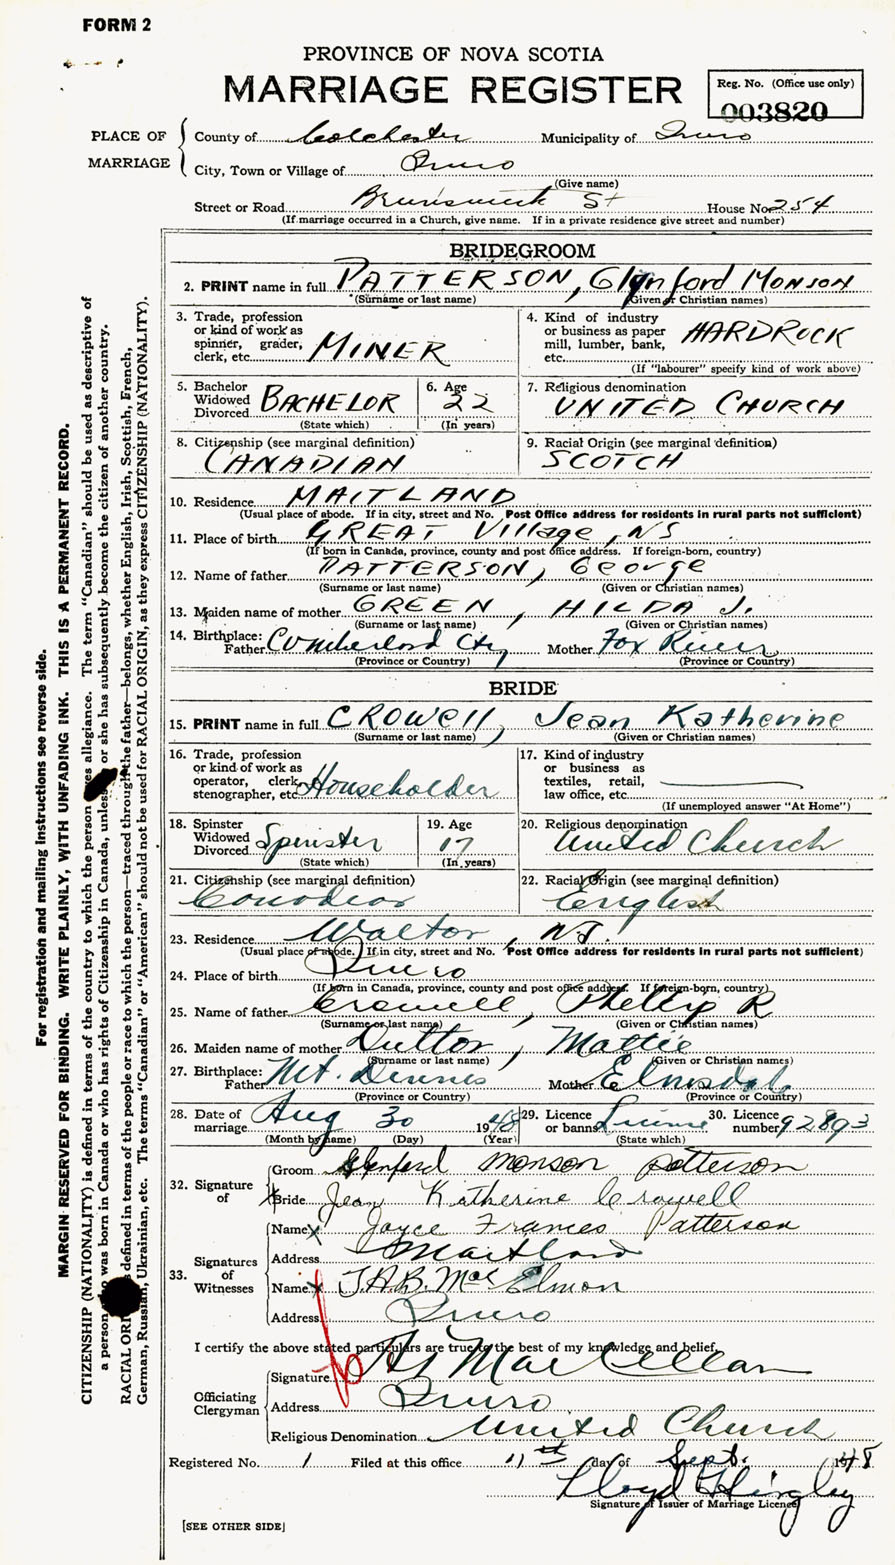 FORM 2
PROVINCE OF NOVA SCOTIA
MARRIAGE REGISTER
Reg. No. (Office use only)
003820
PLACE OF MARRIAGE
County of Colchester Municipality of Truro
City, Town or Village of Truro
(Give name)
Street or Road Brunswick St House No. 254
(If marriage occurred in a Church, give name. If in a private residence give street and number)
BRIDEGROOM
2. PRINT name in full PATTERSON, Glynford MONSON
(Surname or last name) (Given or Christian names)
3. Trade, profession or kind of work as spinner, grader, clerk, etc. MINER
4. Kind of industry or business as paper mill, lumber, bank, etc. HARDROCK
(If "labourer" specify kind of work above)
5. Bachelor Widowed Divorced BACHELOR
(State which)
6. Age 22
(In years)
7. Religious denomination UNITED CHURCH
8. Citizenship (see marginal definition) CANADIAN
9. Racial Origin (see marginal definition) SCOTCH
10. Residence MAITLAND
(Usual place of abode. If in city, street and No. Post Office address for residents in rural parts not sufficient)
11. Place of birth GREAT Village, NS
(If born in Canada, province, county and post office address. If foreign-born, country)
12. Name of father PATTERSON, George
(Surname or last name) (Given or Christian names)
13. Maiden name of mother GREEN, HILDA J.
(Surname or last name) (Given or Christian names)
14. Birthplace: Father Cumberland Cty Mother Fox River
(Province or Country) (Province or Country)
BRIDE
15. PRINT name in full CROWell, Jean Katherine
(Surname or last name) (Given or Christian names)
16. Trade, profession or kind of work as operator, clerk, stenographer, etc. Householder
17. Kind of industry or business as textiles, retail, law office, etc.
(If unemployed answer "At Home")
18. Spinster Widowed Divorced Spinister
(State which)
19. Age 17
(In years)
20. Religious denomination United Church
21. Citizenship (see marginal definition) Canadian
22. Racial Origin (see marginal definition) English
23. Residence Walton, N.S.
(Usual place of abode. If in city, street and No. Post Office address for residents in rural parts not sufficient)
24. Place of birth Truro
(If born in Canada, province, county and post office address. If foreign-born, country)
25. Name of father Crowell, Phillip R
(Surname or last name) (Given or Christian names)
26. Maiden name of mother Dutton, Mattie
(Surname or last name) (Given or Christian names)
27. Birthplace: Father Mt. Dennis Mother Elmsdale
(Province or Country) (Province or Country)
28. Date of marriage Aug 30 1948
(Month by name) (Day) (Year)
29. Licence or banns License
(State which)
30. Licence number 92893
32. Signature of
Groom Glenford Monson Patterson
Bride Jean Katherine Crowell
33. Signatures of Witnesses
Name Joyce Frances Patterson
Address Maitland
Name J.A.B. McElmon
Address Truro
I certify the above stated particulars are true to the best of my knowledge and belief,
Officiating Clergyman
Signature MacLellan
Address Truro
Religious Denomination United Church
Registered No. 1 Filed at this office 11st day of Sept. 1948
Lloyd Hingley
Signature of Issuer of Marriage Licence
[SEE OTHER SIDE]
For registration and mailing instructions see reverse side.
MARGIN RESERVED FOR BINDING. WRITE PLAINLY, WITH UNFADING INK. THIS IS A PERMANENT RECORD.
CITIZENSHIP (NATIONALITY) is defined in terms of the country to which the person allegiance. The term "Canadian" should be used as descriptive of
a person was born in Canada or who has rights of Citizenship in Canada, unless or she has subsequently become the citizen of another country.
RACIAL defined in terms of the people or race to which the person—traced through the father—belongs, whether English, Irish, Scottish, French,
German, Russian, Ukrainian, etc. The terms "Canadian" or "American" should not be used for RACIAL ORIGIN, as they express CITIZENSHIP (NATIONALITY).